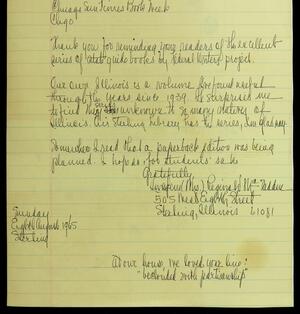 Chicago Sun Times Book Week
Chgo
Thank you for reminding your readers of the excellent
series of state guide books by Federal Writers project.
Our own Illinois is a volume I've found useful
through the years since 1939. It surprises me
to find it is unknown to so many natives of
Illinois. Our Sterling Library has the series, I'm glad to say
Somewhere I read that a paperback edition was being
planned. I hope so for students' sake
Gratefully,
(Mrs) Reginald Mac Fadden
505 West Eighth Street
Sterling, Illinois 61081
Sunday
Eighth August 1965
Sterling
At our house, we loved your line:
"beclouded with partisanship"